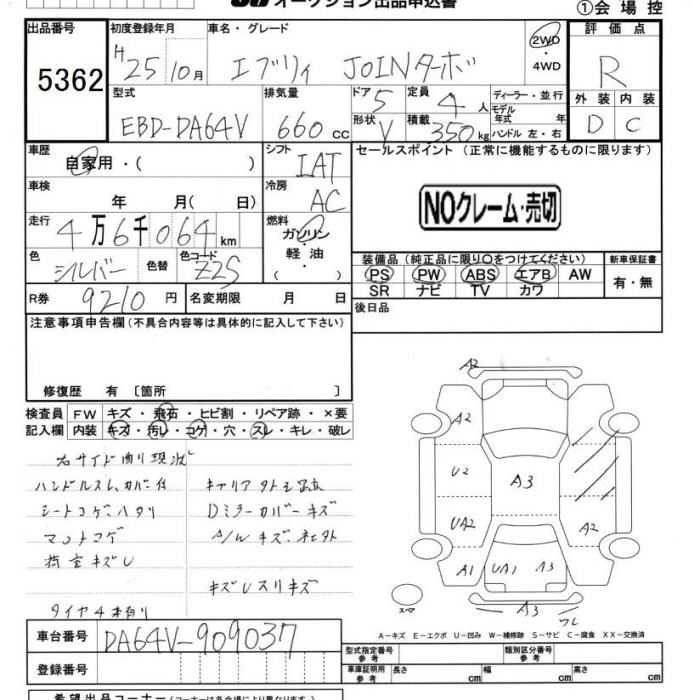 オークション出品申込書
①会場控
出品番号
5362
初度登録年月
H25 10月
車名・グレード
エブリィ JOINターボ
2WD
・4WD
評価点
R
型式
EBD-DA64V
排気量
660cc
ドア
5
形状
V
定員
4人
積載
350kg
ディーラー・並行
モデル
年式 年
ハンドル 左・右
外装 内装
D C
車歴
自家用・( )
シフト
IAT
セールスポイント (正常に機能するものに限ります)
車検
年 月( 日)
冷房
AC
NOクレーム・売切
走行
4万6千064km
燃料
ガソリン
・
軽油
( )
色
シルバー
色替
色コード
Z2S
装備品(純正品に限り○をつけてください)
新車保証書
PS PW ABS エアB AW
SR ナビ TV カワ
有・無
R券
9210円
名変期限 月 日
後日品
注意事項申告欄(不具合内容等は具体的に記入して下さい)
修復歴 有 〔箇所 〕
検査員 FW キズ・飛石・ヒビ割・リペア跡・×要
記入欄 内装 キズ・汚レ・コゲ・穴・スレ・キレ・破レ
右サイド
ハンドルスレ、カバー付
シートコゲ、ハタリ
Dミラーカバーキズ
マットコゲ
A/Wキズ、社外
荷室キズU
キズUスリキズ
タイヤ4本有り
A2
A2
U2
A3
UA2
A2
A1
UA1
A3
スペア
A3
ワレ
車台番号
DA64V-909037
登録番号
A-キズ E-エクボ U-凹み W-補修跡 S-サビ C-腐食 XX-交換済
型式指定番号
参考
類別区分番号
参考
車庫証明用
参考
長さ cm 幅 cm 高さ cm
希望出品コーナー(コーナーは各会場により異なります)